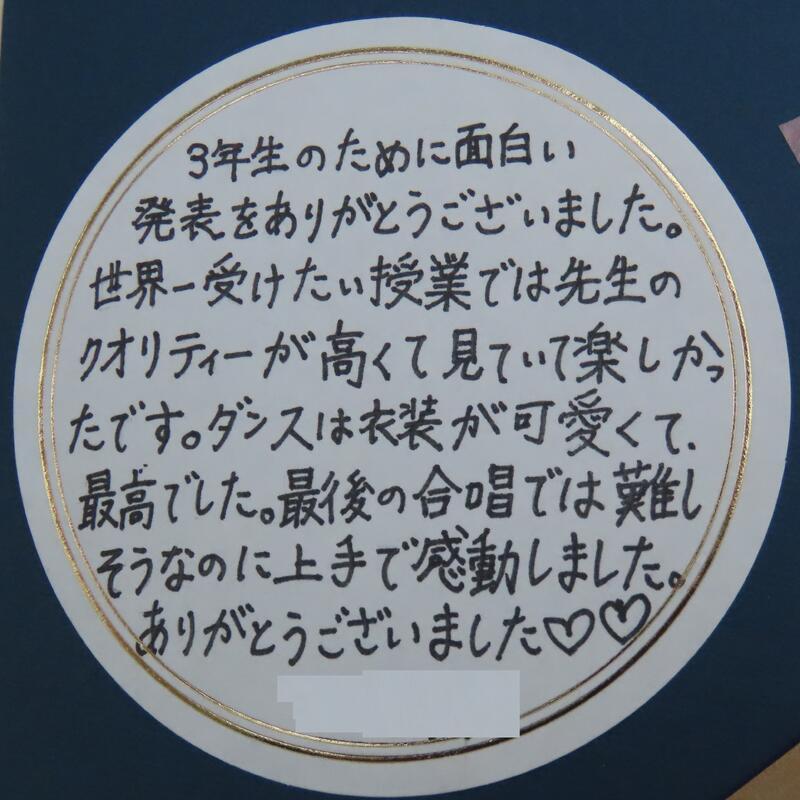 3年生のために面白い
発表をありがとうございました。
世界一受けたい授業では先生の
クオリティーが高くて見ていて楽しかっ
たです。ダンスは衣装が可愛くて、
最高でした。最後の合唱では難し
そうなのに上手で感動しました。
ありがとうございました♡♡